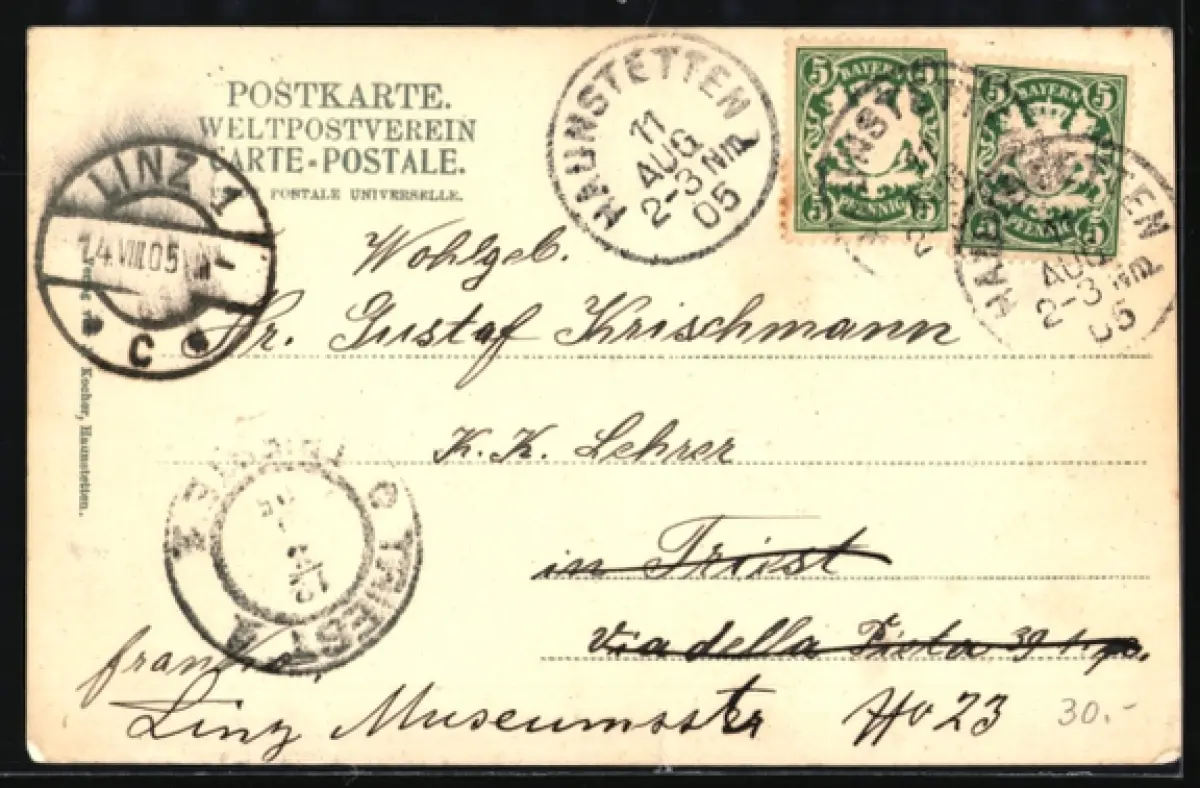 POSTKARTE.
WELTPOSTVEREIN
CARTE-POSTALE.
POSTALE UNIVERSELLE.
HAUNSTETTEN
11
AUG
2-3 Nm
05
5 BAYERN 5
5 PFENNIG 5
5 BAYERN 5
5 PFENNIG 5
HAUNSTETTEN
AUG
2-3 Nm
05
LINZ 1
14 VIII 05
C
Wohlgeb.
Hr. Gustaf Krischmann
K. K. Lehrer
in Triest
Via della 39
TRIESTE TRIEST
franko.
Linz Museumsstr 23
30.-
Kocher, Haunstetten.